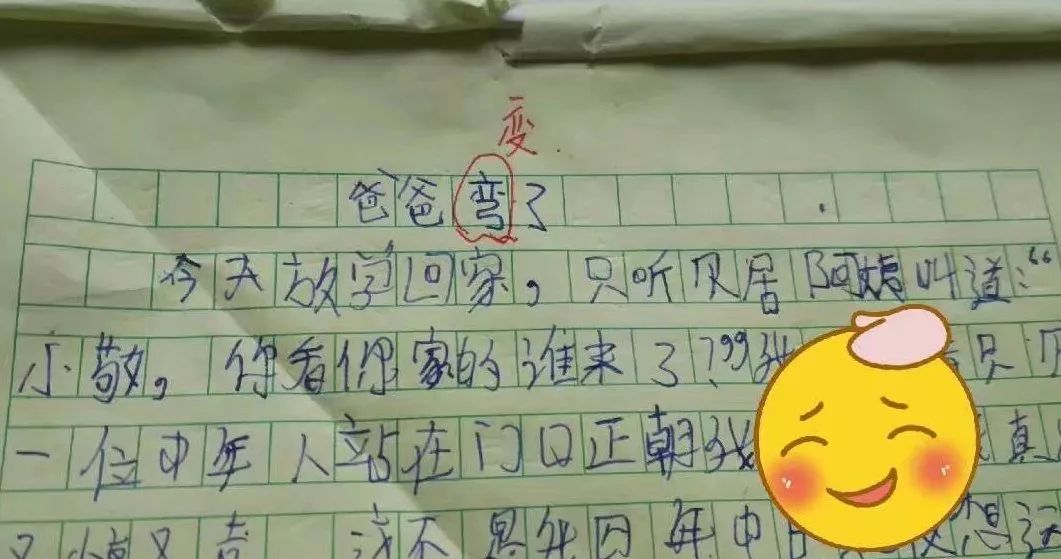 变
爸爸弯了
今天放学回家，只听见居阿姨叫道：“
小敬，你看你家的谁来了？”我 只见
一位中年人站在门口正朝我 真
又 又 我不 四年中 想